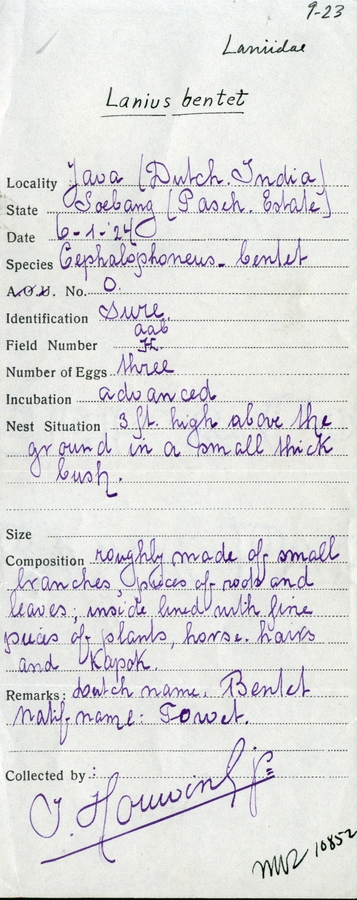 9-23
Laniidae
Lanius bentet
Locality Java (Dutch. India)
State Soebang (Pasch. Estate)
Date 6-1-'24
Species Cephalophoneus - bentet
A.O.U. No. O.
Identification sure.
aab
Field Number
Number of Eggs three
Incubation advanced
Nest Situation 3 ft. high above the
ground in a small thick
bush.
Size
Composition roughly made of small
branches, pieces of roots and
leaves; inside lined with fine
pieces of plants, horse. hairs
and Kapok.
Remarks: dutch name. Bentet
natif name: Towet.
Collected by :
10852